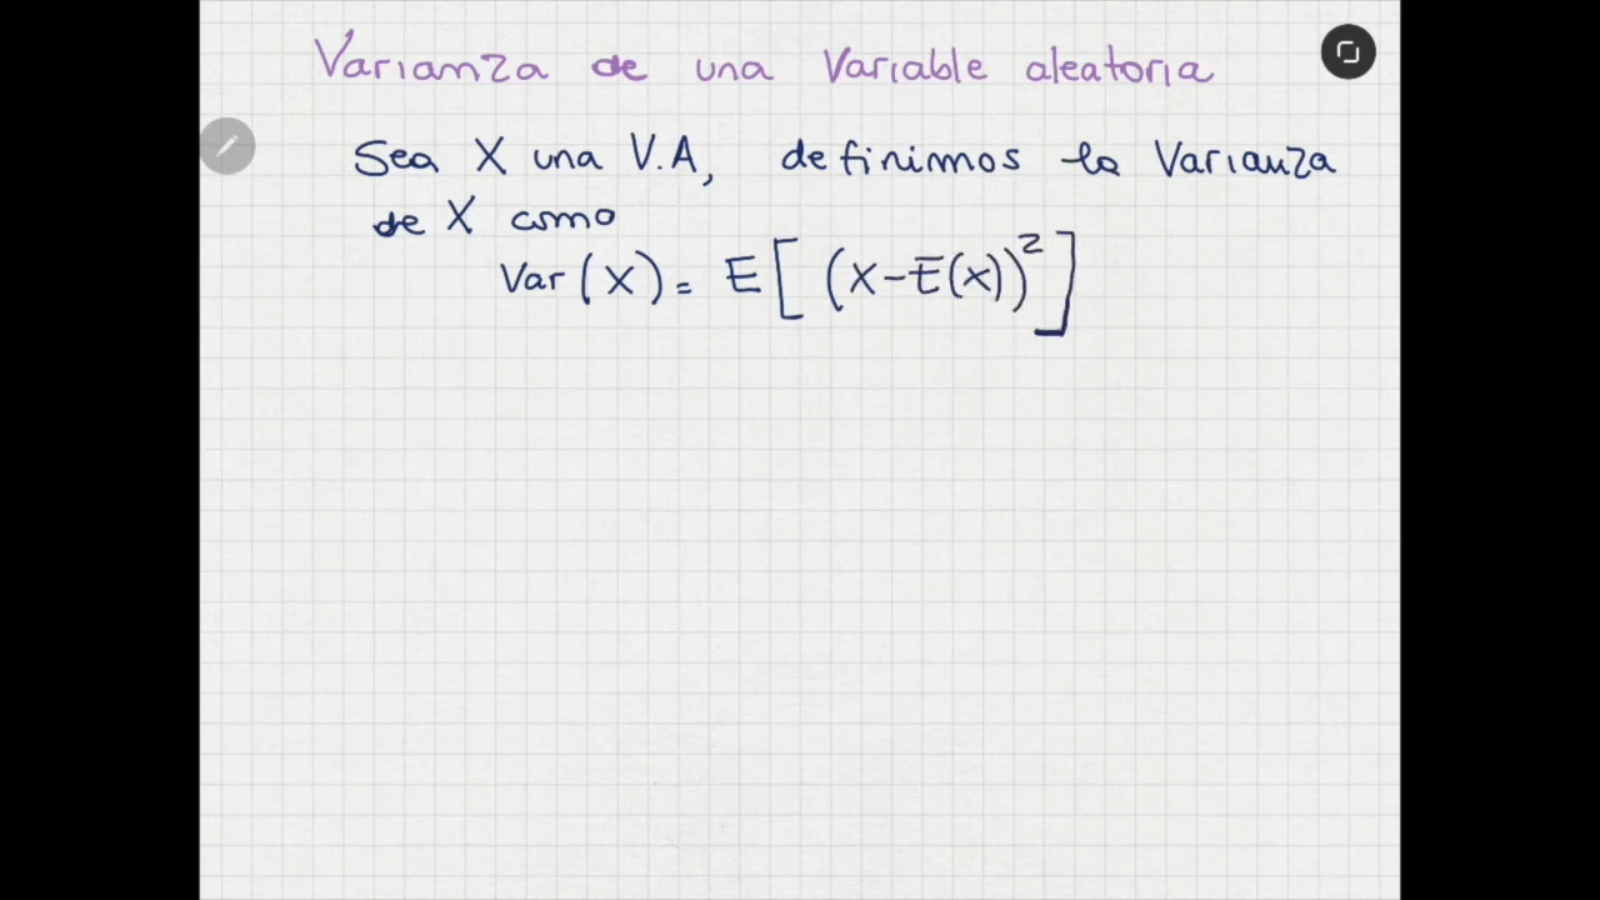 Varianza de una Variable aleatoria
Sea X una V.A, definimos la Varianza
de X como
Var(X) = E[(X-E(X))²]